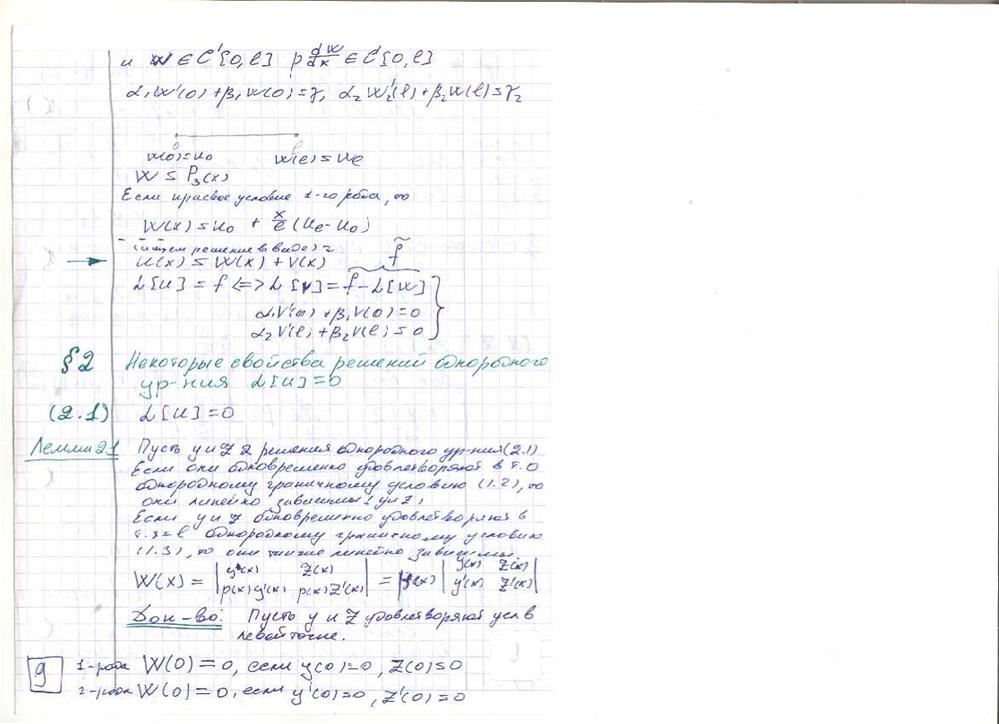 и W ∈ C'[0,l] p dw/dx ∈ C'[0,l]
α₁W'(0) + β₁W(0) = γ₁ α₂W₂'(l) + β₂W(l) = γ₂
0 l
u(0) = u₀ u(l) = u_l
W = P₃(x)
Если краевое условие 1-го рода, то
W(x) = u₀ + x/l (u_l - u₀)
ищем решение в виде
u(x) = W(x) + V(x) f̃
L[u] = f <=> L[V] = f - L[W]
α₁V'(0) + β₁V(0) = 0
α₂V'(l) + β₂V(l) = 0
§2 Некоторые свойства решений однородного
ур-ния L[u] = 0
(2.1) L[u] = 0
Лемма 2.1 Пусть y и z 2 решения однородного ур-ния (2.1)
Если они одновременно удовлетворяют в т. 0
однородному граничному условию (1.2), то
они линейно зависимы (y и z)
Если y и z одновременно удовлетворяют в
т. x=l однородному граничному условию
(1.3), то они также линейно зависимы.
W(x) = | y(x) z(x) | = p(x) | y(x) z(x) |
| p(x)y'(x) p(x)z'(x) | | y'(x) z'(x) |
Док-во: Пусть y и z удовлетворяют усл в
левой точке.
9 1-рода W(0) = 0, если y(0)=0, z(0)=0
2-рода W(0) = 0, если y'(0)=0, z'(0)=0